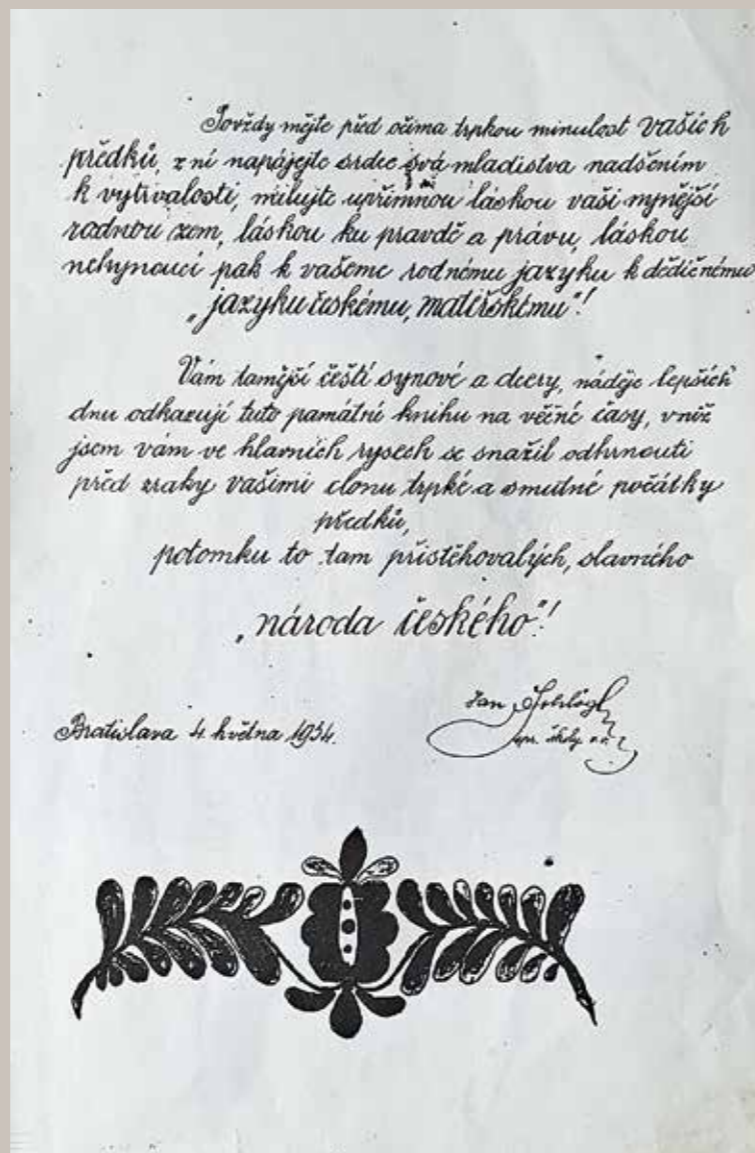 Povždy mějte před očima trpkou minulost vašich
předků, z ní napájejte srdce svá mladistva nadšením
k vytrvalosti, milujte upřímnou láskou vaši nynější
rodnou zem, láskou ku pravdě a právu, láskou
nehynoucí pak k vašeme rodnému jazyku k dědičnému
„jazyku českému, mateřskému"!
Vám tamější čeští synové a dcery, náděje lepších
dnu odkazují tuto památní knihu na věčné časy, v níž
jsem vám ve hlavních rysech se snažil odhrnouti
před zraky vašimi clonu trpké a smutné počátky
předků,
potomku to tam přistěhovalých, slavného
„národa českého"!
Bratislava 4. května 1934.
Jan
spr. školy v.v.